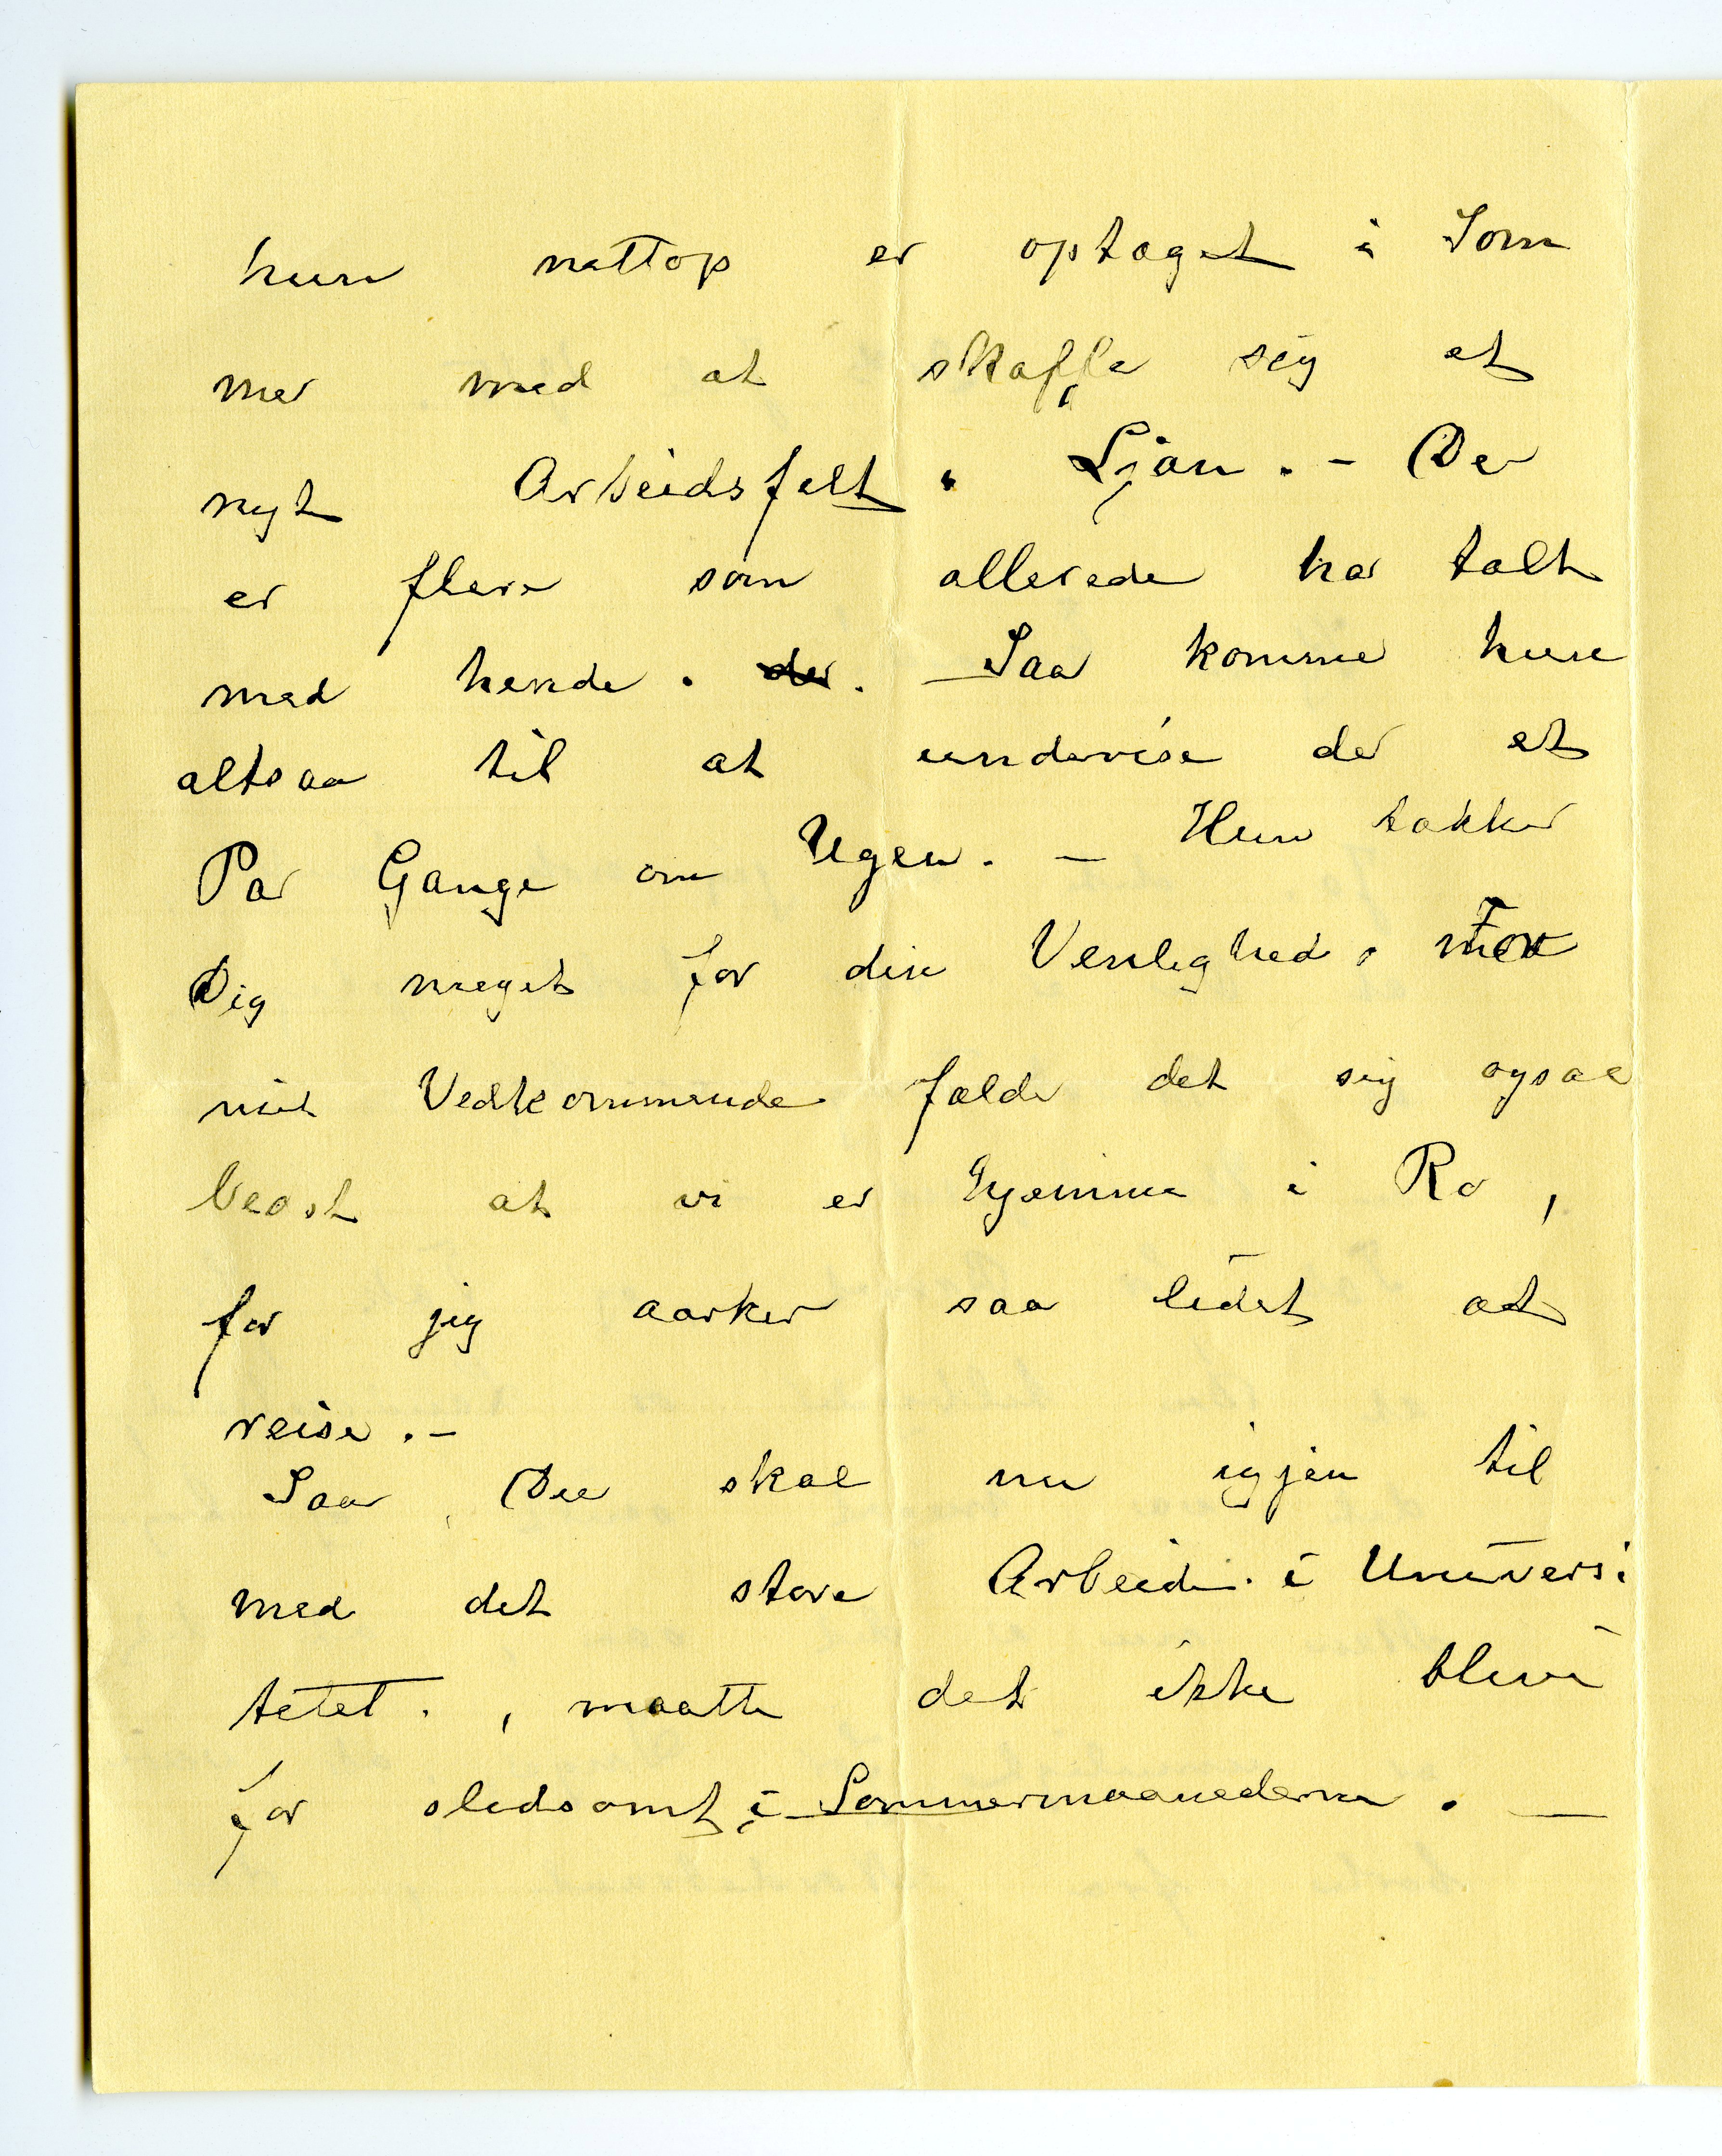 hun nættop er optaget i Som
mer med at skaffe sig et
nyt Arbeidsfelt, Ljan. – Der
er flere som allerede har talt
med hende. der. Saa kommer hun
altsaa til at undervise der et
Par Gange om Ugen. – Hun takker
Dig meget for din Venlighed. For
mit Vedkommende falder det sig ogsaa
bedst at vi er hjemme i Ro,
for jeg aarker saa lidet at
reise. –
Saa, Du skal nu igjen til
med det store Arbeide. i Universi
tetet., maatte det ikke blive
for slidsomt i Sommermaanederne. –